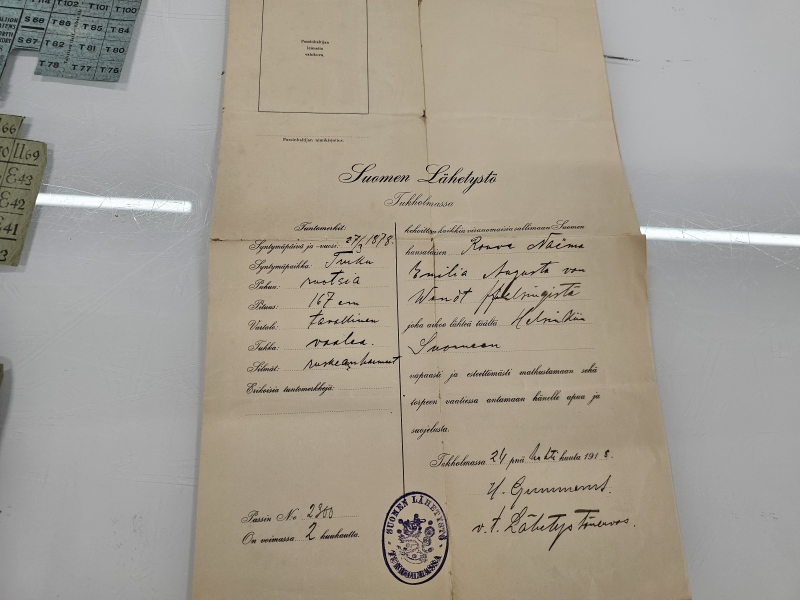 T 100
S 68
T 86
T 85
T 84
S 67
T 82
T 81
T 80
T 78
T 77
T 76
66
U69
E43
E42
E41
3
Passinhaltijan
Passinhaltijan nimikirjoitus.
Suomen Lähetystö
Tukholmassa
Tuntomerkit:
Syntymäpäivä ja -vuosi: 27/3 1878.
Syntymäpaikka: Turku
Puhuu: ruotsia
Pituus: 167 cm
Vartalo: tavallinen
Tukka: vaalea.
Silmät: ruskeanharmaat
Erikoisia tuntomerkkejä:
Passin No 2300
On voimassa 2 kuukautta.
kehoittaa kaikkia viranomaisia sallimaan Suomen
kansalaisen Rouva Naëma
Emilia Augusta von
Wendt Helsingistä
joka aikoo lähteä täältä Helsinkiin
Suomeen
vapaasti ja esteettömästi matkustamaan sekä
tarpeen vaatiessa antamaan hänelle apua ja
suojelusta.
Tukholmassa 24 pnä huhti kuuta 1918.
v.t. Lähetystöneuvos.
SUOMEN LÄHETYSTÖ
TUKHOLMASSA